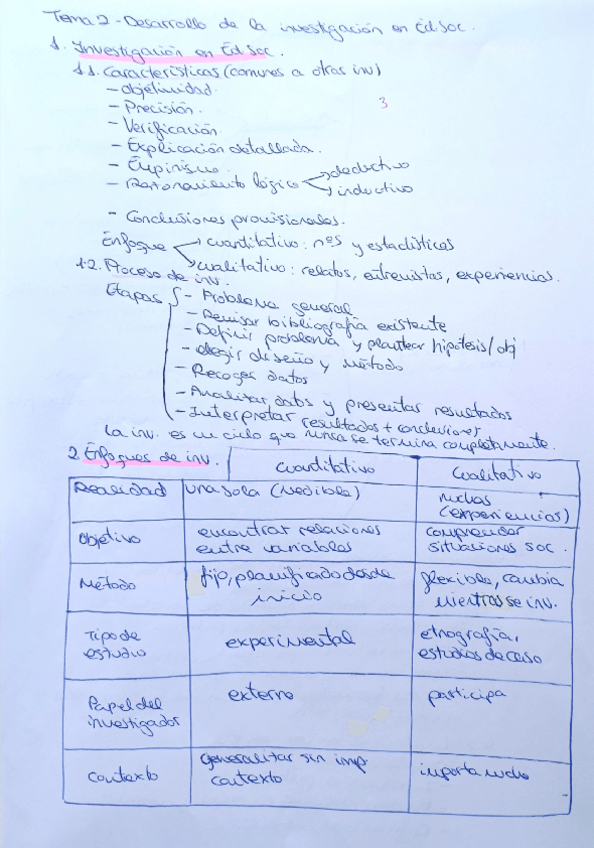 Tema 2 - Desarrollo de la investigación en Ed. Soc.
1. Investigación en Ed Soc.
1.1. Características (comunes a otras inv)
- Objetividad.
- Precisión.
3
- Verificación
- Explicación detallada.
- Empirismo.
- Razonamiento lógico → deductivo
→ inductivo
- Conclusiones provisionales.
Enfoque → cuantitativo: nºs y estadísticas
→ cualitativo: relatos, entrevistas, experiencias.
1.2. Proceso de inv.
Etapas - Problema general
- Revisar bibliografía existente
- Definir problema y plantear hipótesis/obj
- elegir diseño y método
- Recoger datos
- Analizar datos y presentar resultados
- Interpretar resultados + conclusiones
La inv. es un ciclo que nunca se termina completamente.
2. Enfoques de inv. cuantitativo cualitativo
Realidad una sola (medible) muchas (experiencias)
Objetivo encontrar relaciones entre variables comprender situaciones soc.
Método fijo, planificado desde inicio flexible, cambia mientras se inv.
Tipo de estudio experimental etnografía, estudios de caso
Papel del investigador externo participa
contexto generalizar sin imp contexto importa mucho